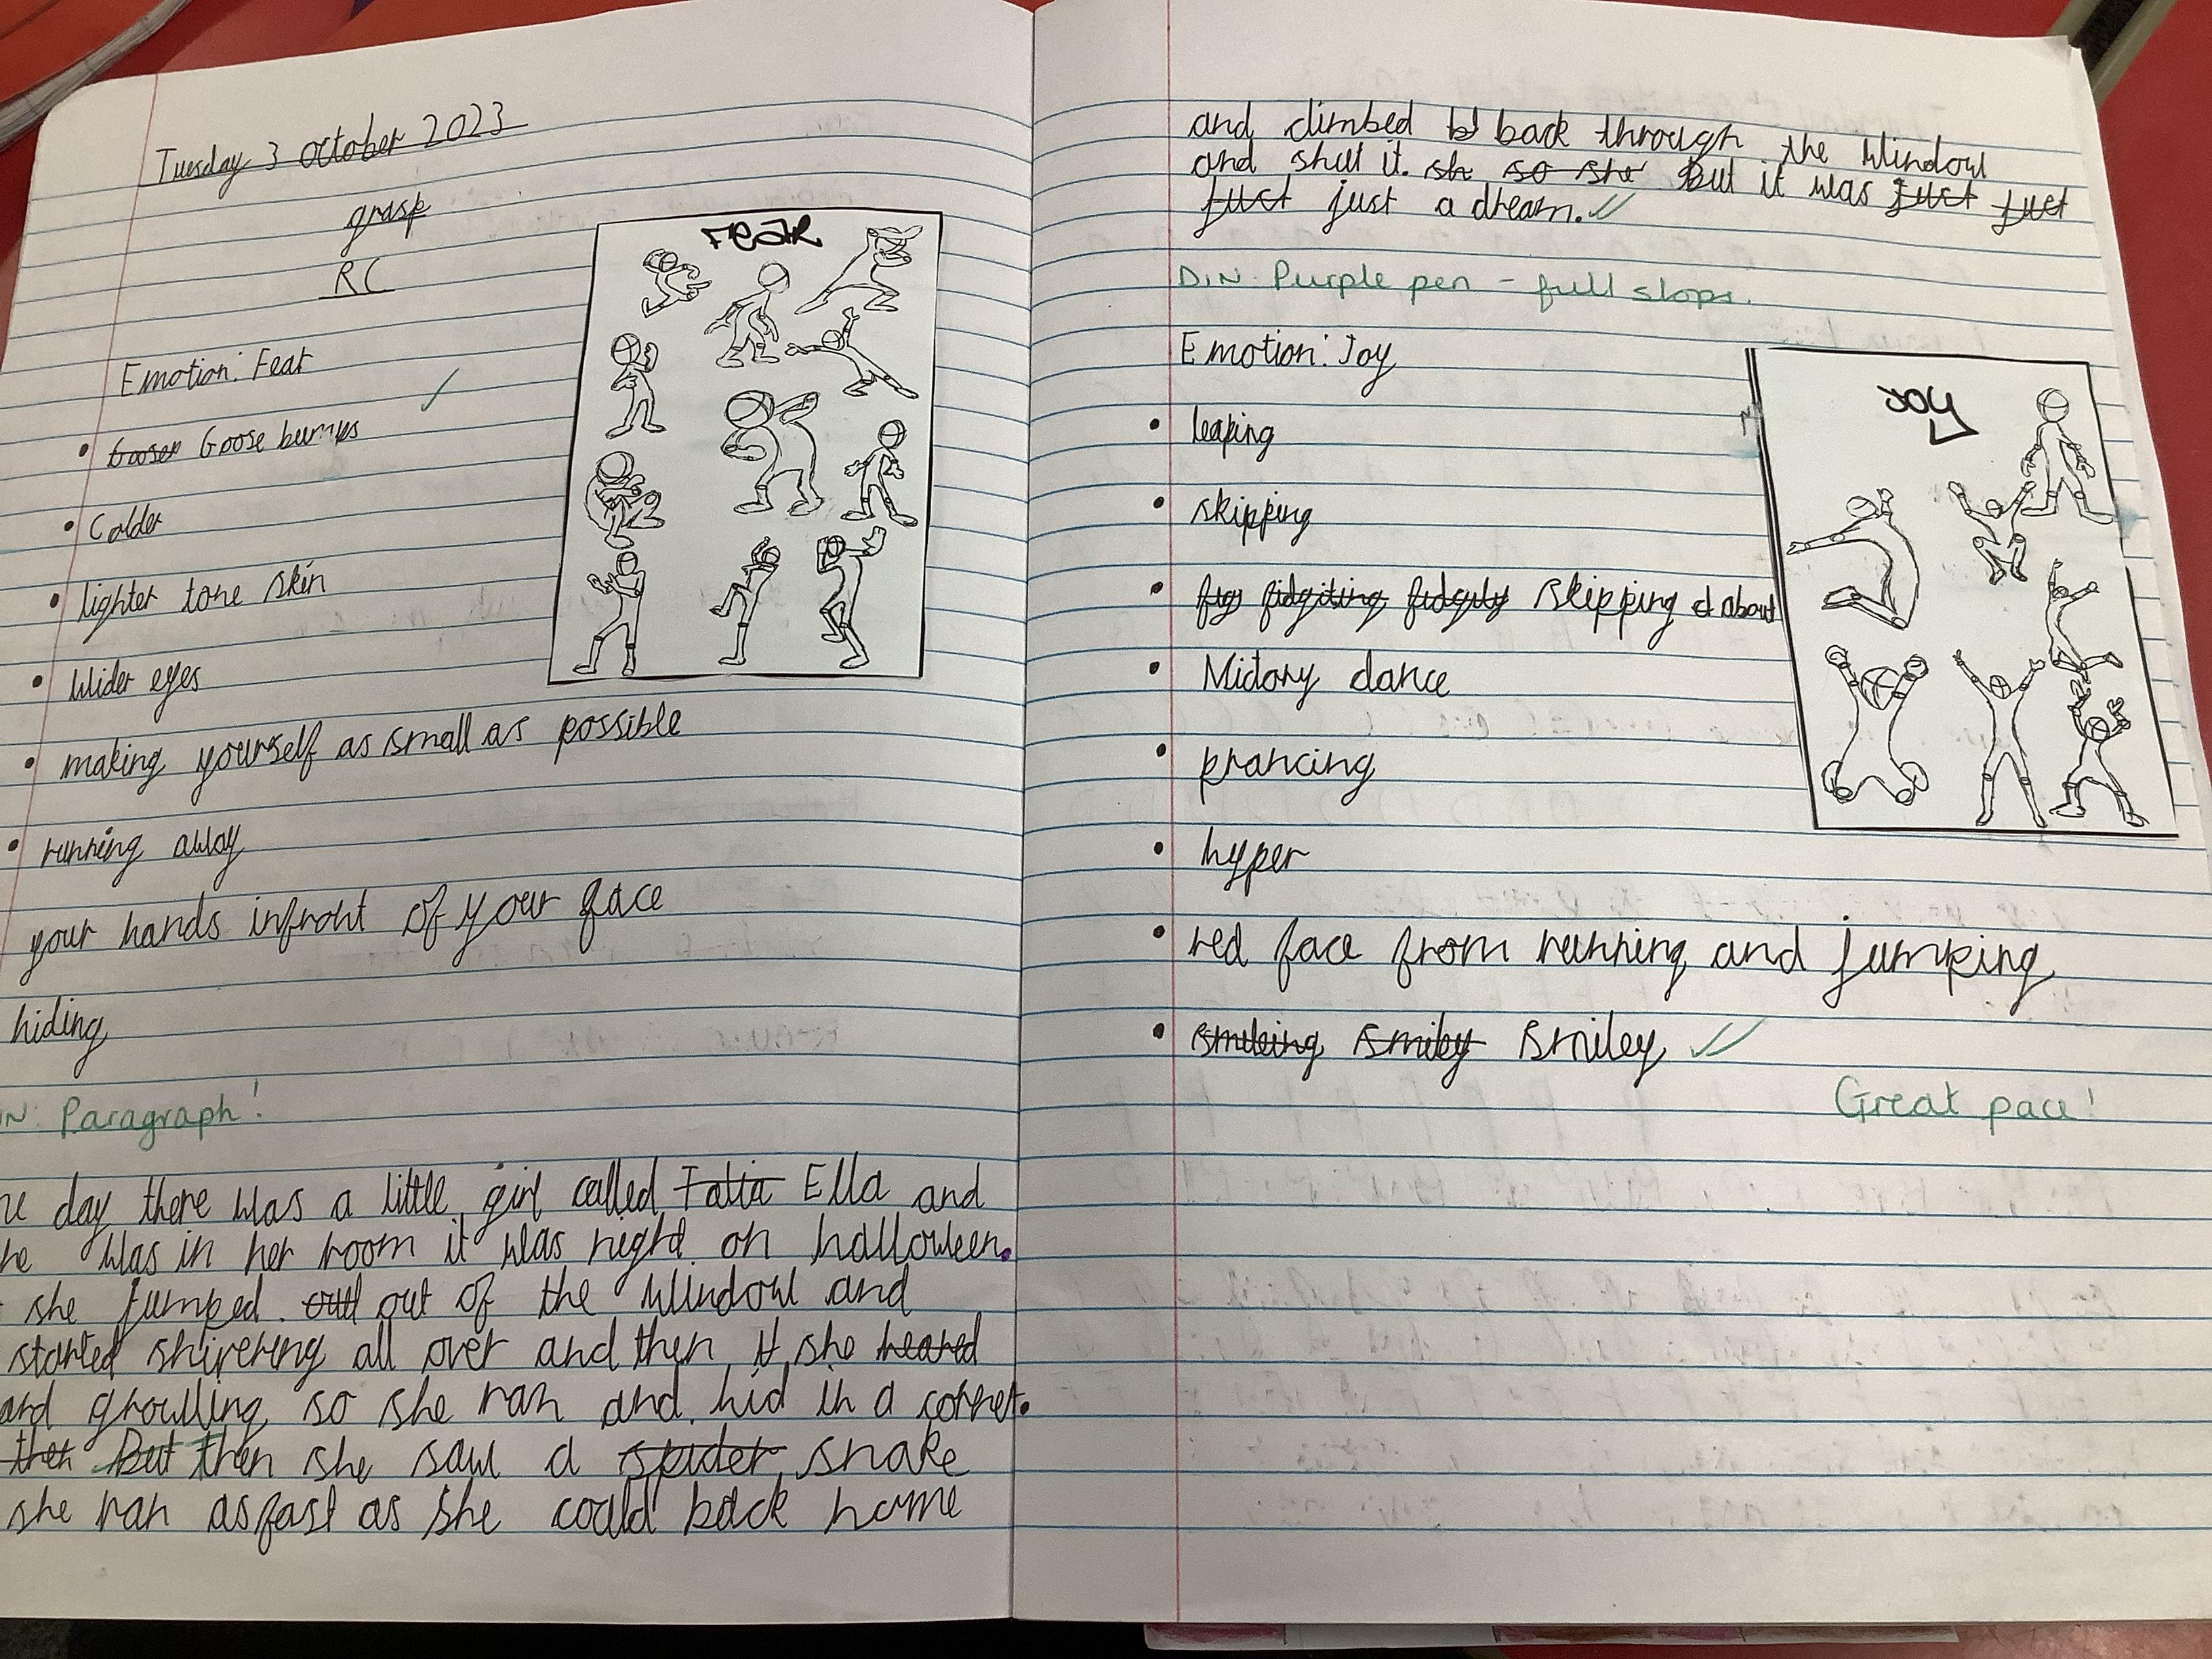 Tuesday 3 october 2023
grasp
RC
FEAR
Emotion: Fear
• Gooser Goose bumps
• Colder
• lighter tone skin
• Wider eyes
• making yourself as small as possible
• running away
your hands infront of your face
hiding
N: Paragraph!
ne day there was a little girl called Ella and
he was in her room it was night on halloween.
she jumped out out of the window and
started shivering all over and then it she heared
and growling so she ran and hid in a corner.
then But then she saw a spider snake
she ran as fast as she could back home
and climbed b back through the window
and shut it. she so she But it was just just
just just a dream.
D.N: Purple pen - full stops.
Emotion: Joy
JOY
• leaping
• skipping
• fig fidgiting fidgity skipping a about
• Victory dance
• prancing
• hyper
• red face from running and jumping
• smileing smiley smiley
Great pace!